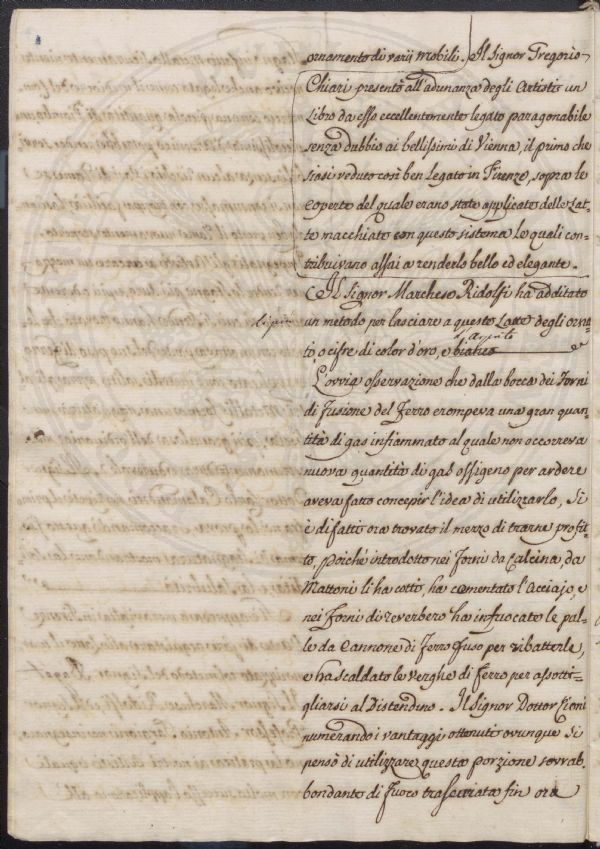 ornamento di varij mobili. Il Signor Gregorio
Chiari presentò all'adunanza degli Artisti un
Libro da esso eccellentemente legato paragonabile
senza dubbio ai bellissimi di Vienna, il primo che
siasi veduto così ben legato in Firenze, sopra le
coperte del quale erano state applicate delle Lat-
te macchiate con questo sistema le quali con-
tribuivano assai a renderlo bello ed elegante.
Il Signor Marchese Ridolfi ha additato
un metodo per lasciare a queste Latte degli orna-
ti, o cifre di color d'oro, e bianco
L'ovvia osservazione che dalla bocca dei Forni
di Fusione del Ferro erompeva una gran quan-
tità di gas infiammato al quale non occorreva
nuova quantità di gas ossigeno per ardere
aveva fatto concepir l'idea di utilizzarlo, Si
è di fatti ora trovato il mezzo di trarne profit-
to, poichè introdotto nei Forni da Calcina, da
Mattoni li ha cotti, ha cementato l'Acciajo, e
nei Forni di reverbero ha infuocato le pal-
le da Cannone di Ferro fuso per ribatterle,
e ha scaldato le verghe di Ferro per assotti-
gliarsi al Distendino. Il Signor Dottor Cioni
numerando i vantaggi ottenuti ovunque si
pensò di utilizzare questa porzione sovrab-
bondante di Fuoco trascurata fin ora